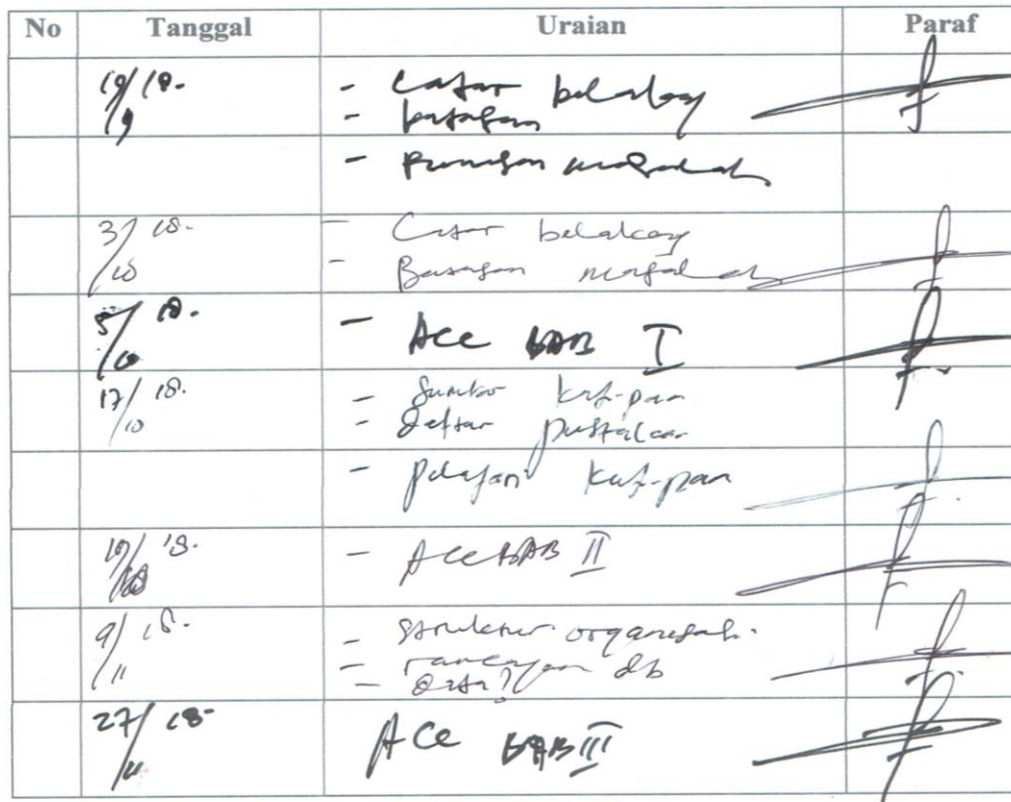 No Tanggal Uraian Paraf
19/9 18. - Latar belakang
- batasan
- Rumusan masalah
3/10 18. - Latar belakang
- Batasan masalah
5/10 18. - Acc BAB I
17/10 18. - Sumber kutipan
- daftar pustaka
- pelajari kutipan
19/10 18. - Acc BAB II
9/11 18. - Struktur organisasi.
- rancangan db
- Data2
27/11 18 Acc BAB III